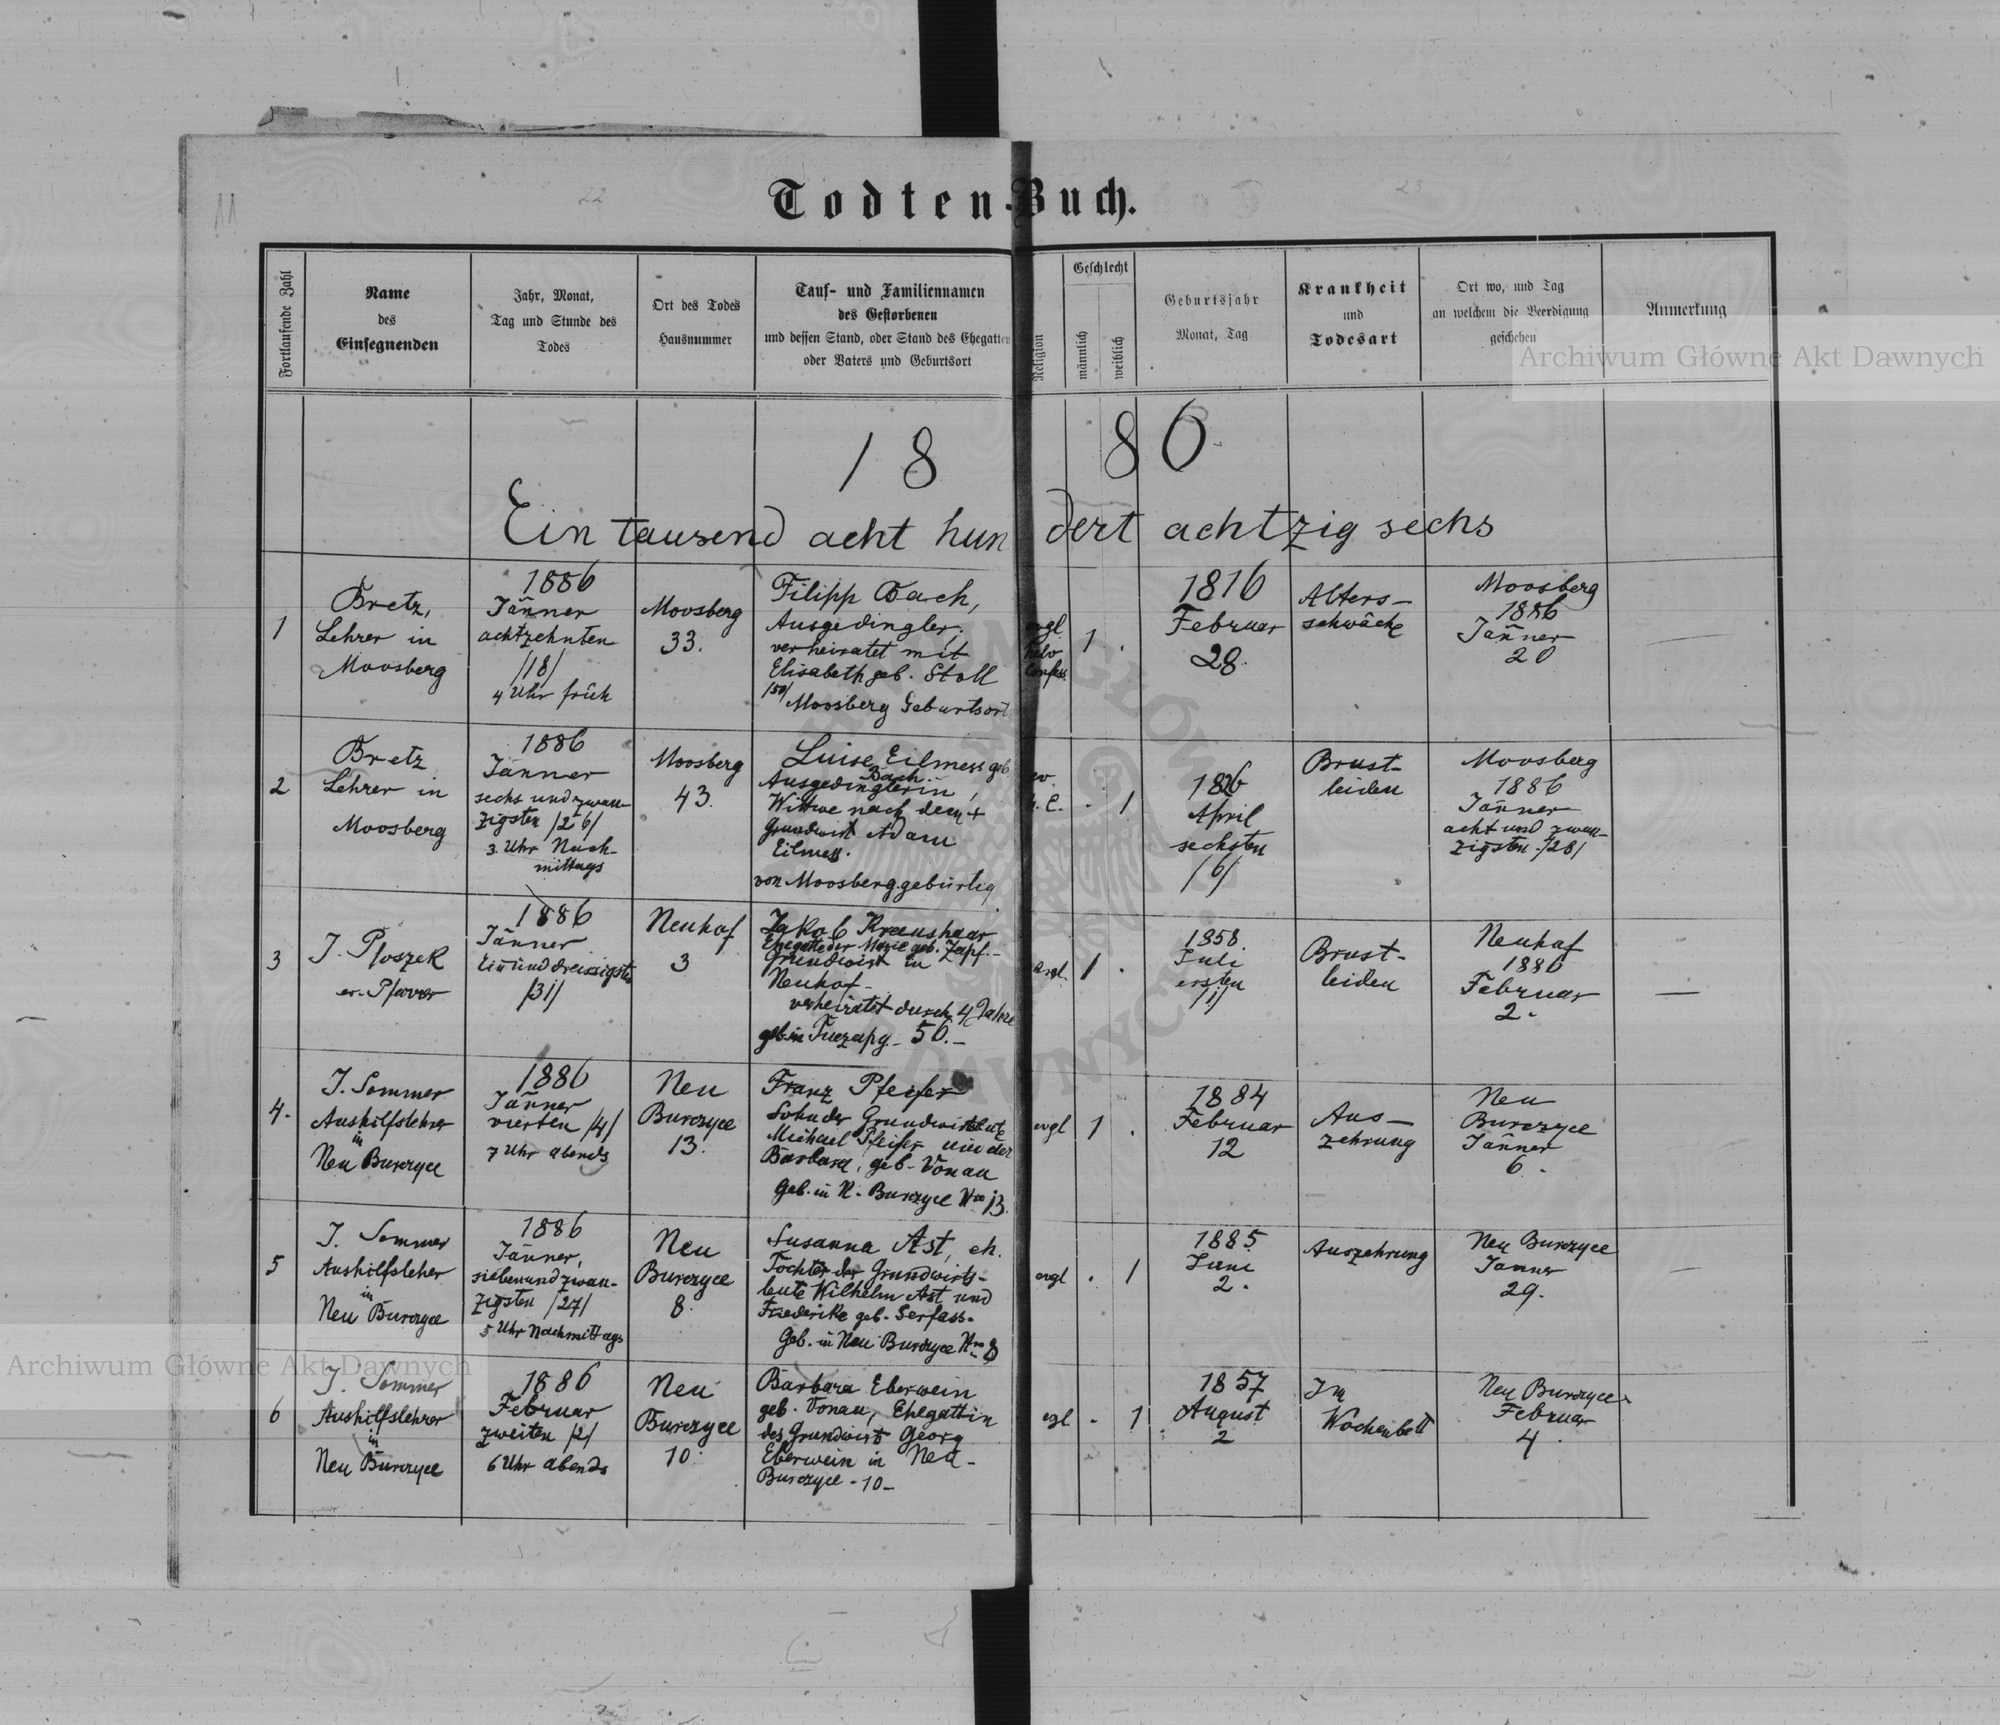 11
22
23
Todten-Buch.
Fortlaufende Zahl
Name
des
Einsegnenden
Jahr, Monat,
Tag und Stunde des
Todes
Ort des Todes
Hausnummer
Tauf- und Familiennamen
des Gestorbenen
und dessen Stand, oder Stand des Ehegatten
oder Vaters und Geburtsort
Religion
Geschlecht
männlich
weiblich
Geburtsjahr
Monat, Tag
Krankheit
und
Todesart
Ort wo, und Tag
an welchem die Beerdigung
geschehen
Anmerkung
1886
Ein tausend acht hundert achtzig sechs
1
Bretz,
Lehrer in
Moosberg
1886
Jänner
achtzehnten
/18/
4 Uhr früh
Moosberg
33.
Filipp Bach,
Ausgedingler,
verheiratet mit
Elisabeth geb. Stoll
/50/
Moosberg Geburtsort
evgl
helv
Confess.
1 .
1816
Februar
28.
Alters-
schwäche
Moosberg
1886
Jänner
20
2
Bretz
Lehrer in
Moosberg
1886
Jänner
sechs und zwan-
zigsten /26/
3 Uhr Nach-
mittags
Moosberg
43.
Luise Eilmess geb
Bach
Ausgedinglerin,
Wittwe nach dem +
Grundwirt Adam
Eilmess.
von Moosberg gebürtig
ev.
h. C.
. 1
1826
April
sechsten
/6/
Brust-
leiden
Moosberg
1886
Jänner
acht und zwan-
zigsten /28/
3
J. Ploszek
ev. Pfarrer
1886
Jänner
Ein und dreissigsten
/31/
Neuhof
3
Jakob Kraushaar
Ehegatte der Marie geb. Zapf.-
Grundwirt in
Neuhof-
verheiratet durch 4 Jahre
geb. in 56.-
evgl.
1 .
1858.
Juli
ersten
/1/
Brust-
leiden
Neuhof
1886
Februar
2.
—
4.
J. Sommer
Aushilfslehrer
in
Neu Burczyce
1886
Jänner
vierten /4/
7 Uhr abends
Neu
Burczyce
13.
Franz Pfeifer
Sohn der Grundwirtsleute
Michael Pfeifer und der
Barbara, geb. Vonau
Geb. in N. Burczyce Nro 13.
evgl
1 .
1884
Februar
12
Aus-
zehrung
Neu
Burczyce
Jänner
6.
5
J. Sommer
Aushilfsleher
in
Neu Burczyce
1886
Jänner,
siebenundzwan-
zigsten /27/
5 Uhr Nachmittags
Neu
Burczyce
8.
Susanna Ast, eh.
Tochter der Grundwirts-
leute Wilhelm Ast und
Friederike geb. Serfass.
Geb. in Neu Burczyce Nro 8
evgl
. 1
1885
Juni
2.
Auszehrung
Neu Burczyce
Janner
29.
6
J. Sommer
Aushilfslehrer
in
Neu Burczyce
1886
Februar
zweiten /2/
6 Uhr abends
Neu
Burczyce
10.
Barbara Eberwein
geb. Vonau, Ehegattin
des Grundwirts Georg
Eberwein in Neu-
Burczyce - 10 -
egl
- 1
1857
August
2
Im
Wochenbett
Neu Burczyce
Februar
4.
Archiwum Główne Akt Dawnych
Archiwum Główne Akt Dawnych